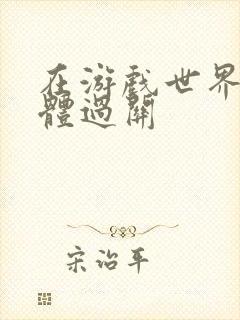 在游戏世界
體過關
宋治平